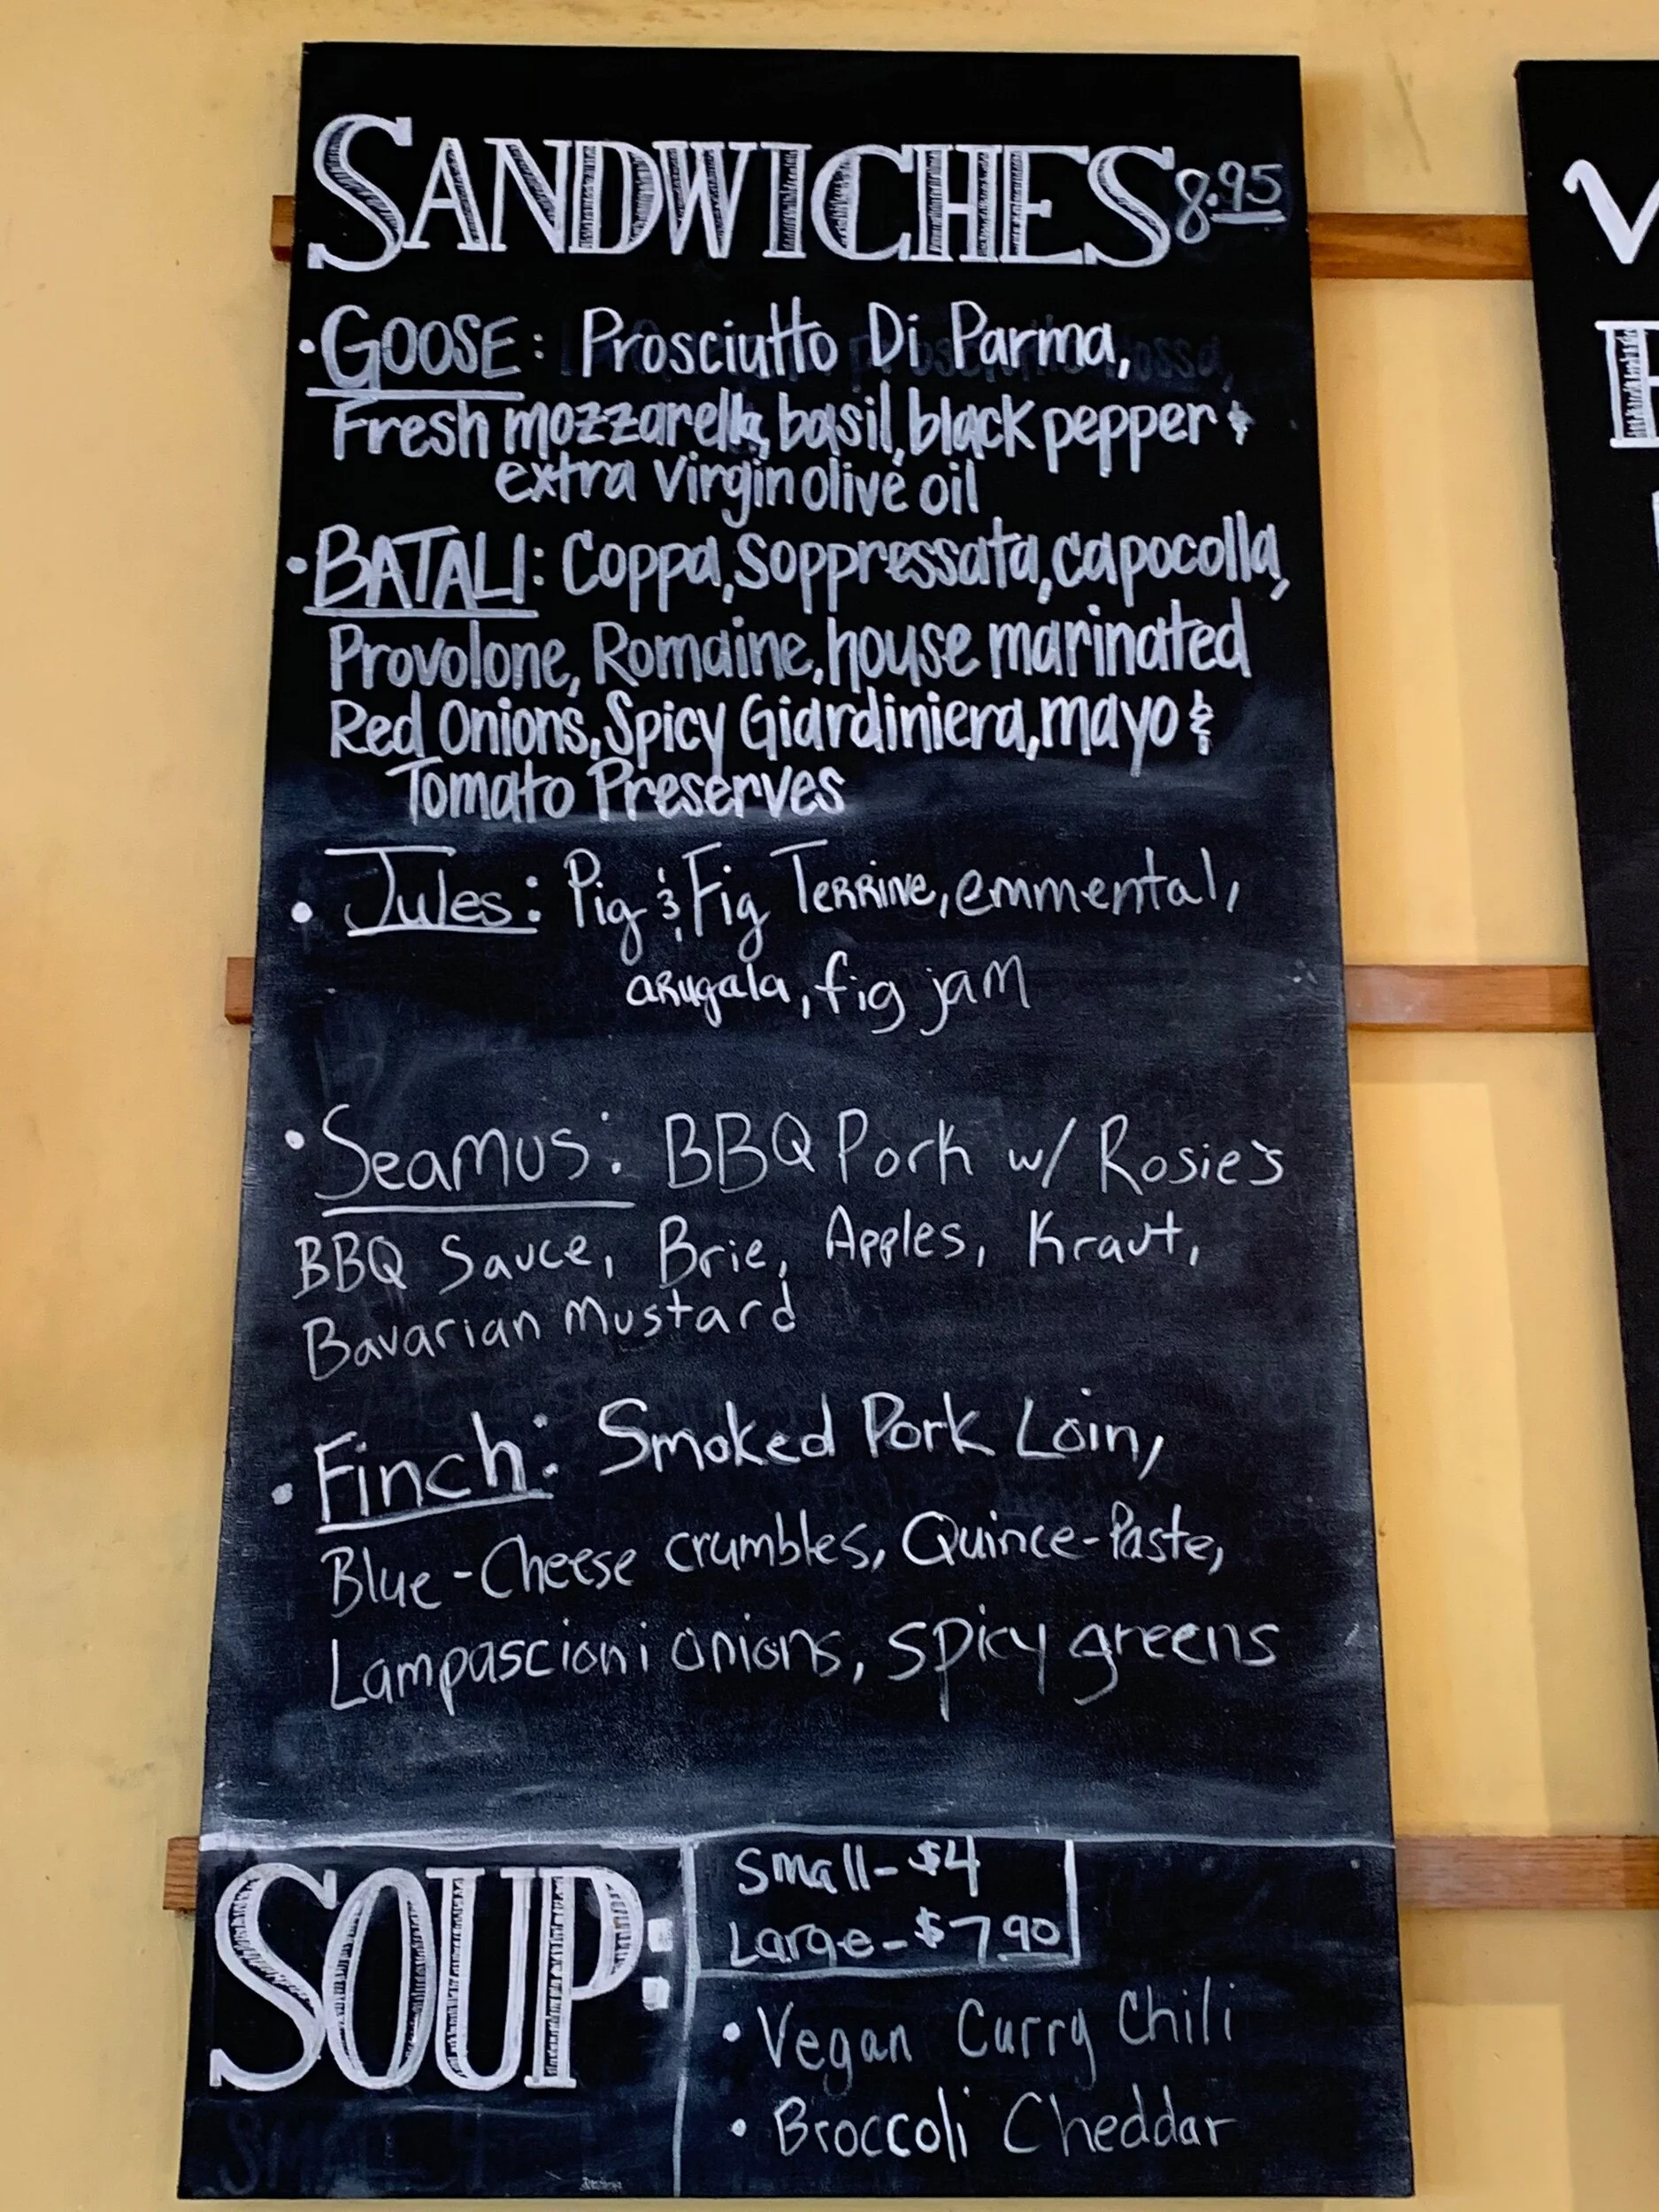 SANDWICHES 8.95
• GOOSE: Prosciutto Di Parma,
Fresh mozzarella, basil, black pepper &
extra virgin olive oil
• BATALI: Coppa, Soppressata, capocolla,
Provolone, Romaine, house marinated
Red Onions, Spicy Giardiniera, mayo &
Tomato Preserves
• Jules: Pig & Fig Terrine, emmental,
arugala, fig jam
• Seamus: BBQ Pork w/ Rosie's
BBQ Sauce, Brie, Apples, Kraut,
Bavarian Mustard
• Finch: Smoked Pork Loin,
Blue-Cheese crumbles, Quince-Paste,
Lampascioni onions, spicy greens
SOUP:
Small - $4
Large - $7.90
• Vegan Curry Chili
• Broccoli Cheddar